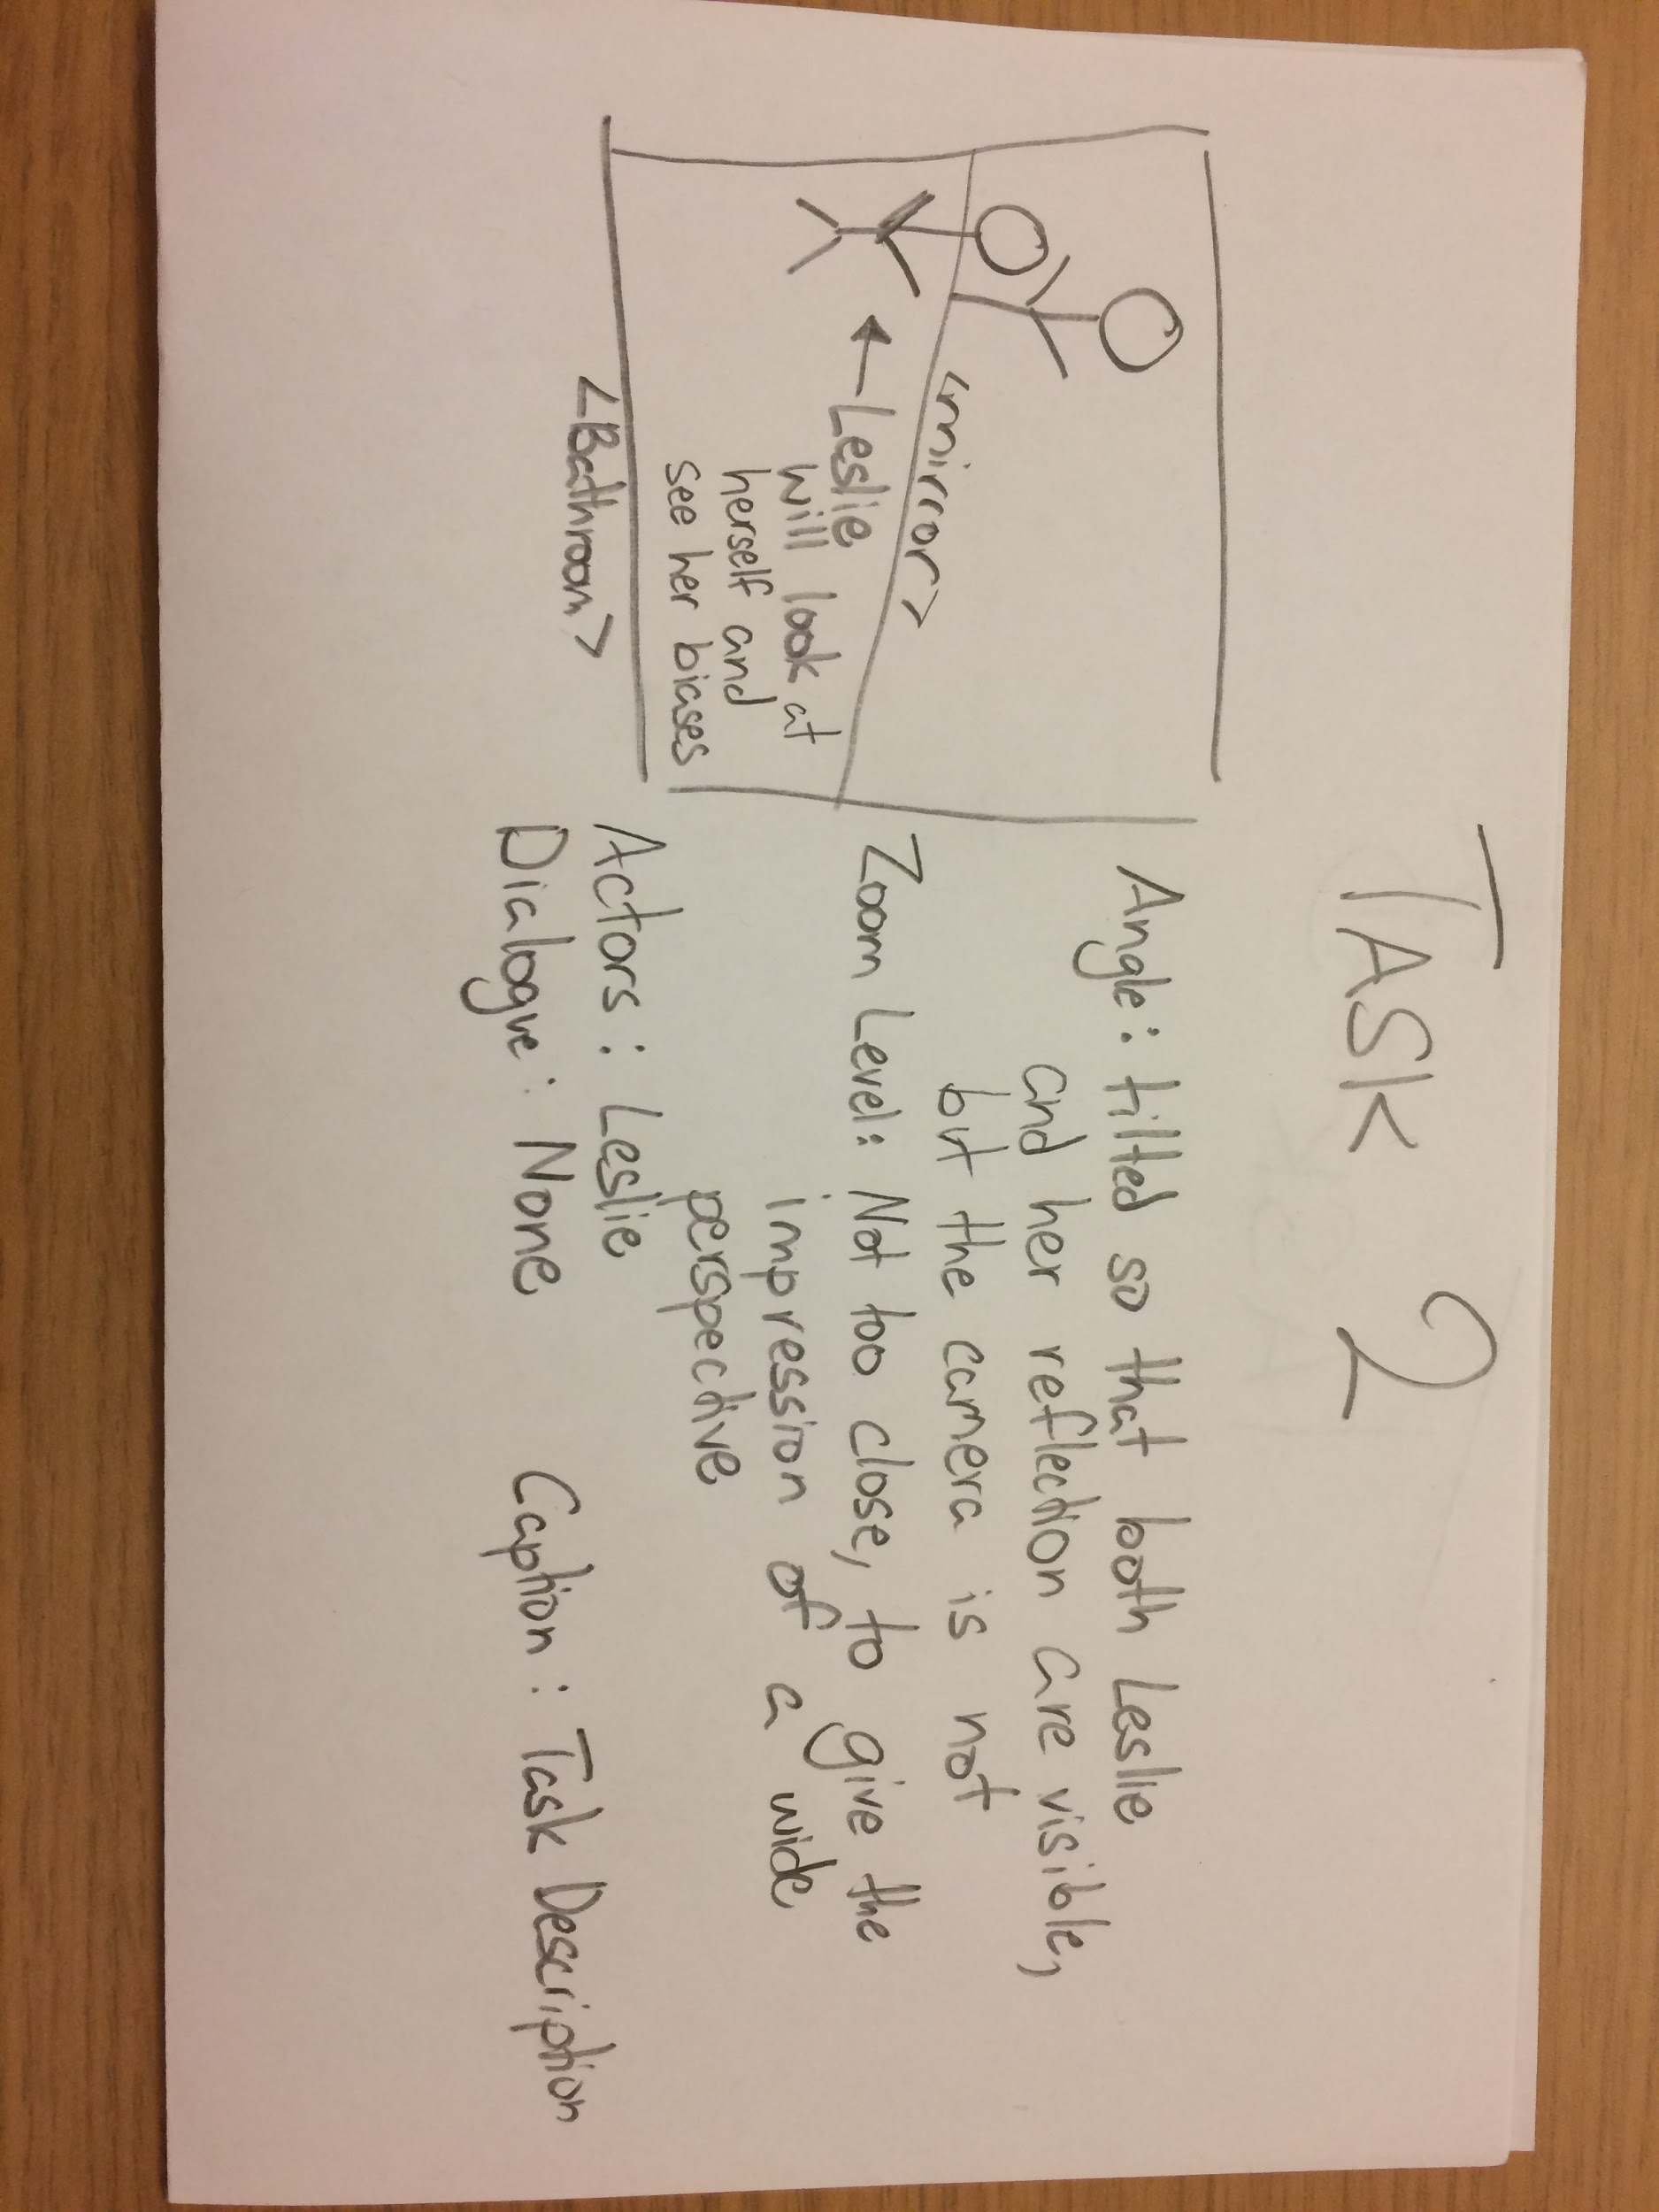 TASK 2
<mirror>
← Leslie
will look at
herself and
see her biases
<Bathroom>
Angle: tilted so that both Leslie
and her reflection are visible,
but the camera is not
Zoom Level: Not too close, to give the
impression of a wide
perspective
Actors: Leslie
Dialogue: None Caption: Task Description